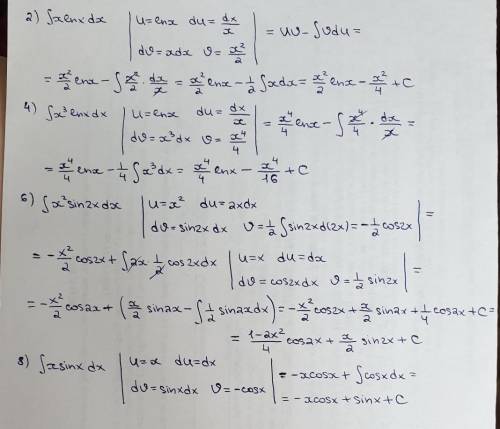 2) ∫xlnxdx | u=lnx du=dx/x dϑ=xdx ϑ=x²/2 | = uϑ-∫ϑdu=
= x²/2 lnx - ∫x²/2 · dx/x = x²/2 lnx - 1/2 ∫xdx = x²/2 lnx - x²/4 + C
4) ∫x³lnxdx | u=lnx du=dx/x dϑ=x³dx ϑ=x⁴/4 | = x⁴/4 lnx - ∫x⁴/4 · dx/x =
= x⁴/4 lnx - 1/4 ∫x³dx = x⁴/4 lnx - x⁴/16 + C
6) ∫x²sin2xdx | u=x² du=2xdx dϑ=sin2xdx ϑ=1/2 ∫sin2xd(2x)=-1/2 cos2x | =
= -x²/2 cos2x + ∫2x 1/2 cos2xdx | u=x du=dx dϑ=cos2xdx ϑ=1/2 sin2x | =
= -x²/2 cos2x + (x/2 sin2x - ∫1/2 sin2xdx) = -x²/2 cos2x + x/2 sin2x + 1/4 cos2x + C =
= 1-2x²/4 cos2x + x/2 sin2x + C
8) ∫xsinxdx | u=x du=dx dϑ=sinxdx ϑ=-cosx | = -xcosx + ∫cosxdx =
= -xcosx + sinx + C